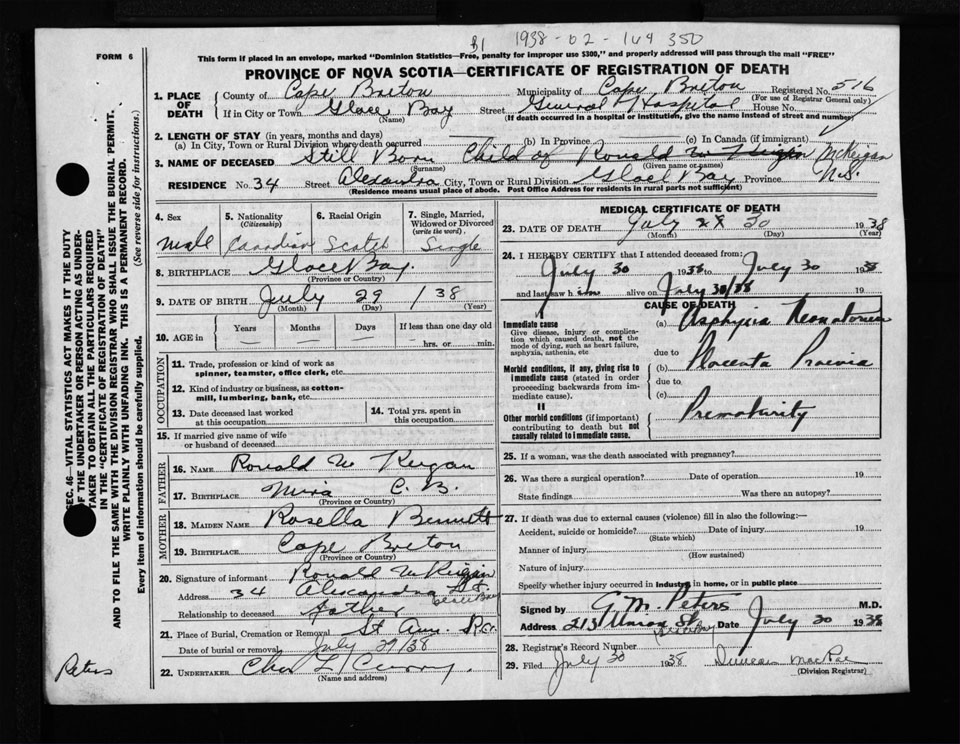 B1 1938-02-144 350
FORM 6
This form if placed in an envelope, marked "Dominion Statistics—Free, penalty for improper use $300," and properly addressed will pass through the mail "FREE"
PROVINCE OF NOVA SCOTIA—CERTIFICATE OF REGISTRATION OF DEATH
1. PLACE OF DEATH
County of Cape Breton Municipality of Cape Breton Registered No. 516
(For use of Registrar General only)
If in City or Town Glace Bay Street General Hospital House No.
(Name) (If death occurred in a hospital or institution, give the name instead of street and number)
2. LENGTH OF STAY (in years, months and days)
(a) In City, Town or Rural Division where death occurred (b) In Province (c) In Canada (if immigrant)
3. NAME OF DECEASED Still Born Child of Ronald McKeigan
(Surname) (Given name or names)
RESIDENCE No. 34 Street Alexandra City, Town or Rural Division Glace Bay Province N.S.
(Residence means usual place of abode. Post Office Address for residents in rural parts not sufficient)
4. Sex
Male
5. Nationality
(Citizenship)
Canadian
6. Racial Origin
Scotch
7. Single, Married, Widowed or Divorced
(write the word)
Single
8. BIRTHPLACE Glace Bay.
(Province or Country)
9. DATE OF BIRTH July 29 / 38
(Month) (Day) (Year)
10. AGE in Years Months Days If less than one day old
hrs. or min.
OCCUPATION
11. Trade, profession or kind of work as
spinner, teamster, office clerk, etc.
12. Kind of industry or business, as cotton-
mill, lumbering, bank, etc.
13. Date deceased last worked
at this occupation
14. Total yrs. spent in
this occupation
15. If married give name of wife
or husband of deceased
FATHER
16. NAME Ronald McKeigan
17. BIRTHPLACE Mira C. B.
(Province or Country)
MOTHER
18. MAIDEN NAME Rosella Bennett
19. BIRTHPLACE Cape Breton
(Province or Country)
20. Signature of informant Ronald McKeigan
Address 34 Alexandra St.
Glace Bay
Relationship to deceased father
21. Place of Burial, Cremation or Removal St Ann R.C.
Date of burial or removal July 29/38
22. UNDERTAKER Chas L Curry.
(Name and address)
MEDICAL CERTIFICATE OF DEATH
23. DATE OF DEATH July 29 30 1938
(Month) (Day) (Year)
24. I HEREBY CERTIFY that I attended deceased from:
July 30 1938 to July 30 1938
and last saw h im alive on July 30/38 19
CAUSE OF DEATH
Immediate cause
Give disease, injury or complica-
tion which caused death, not the
mode of dying, such as heart failure,
asphyxia, asthenia, etc
(a) Asphyxia Neonatorum
due to
Morbid conditions, if any, giving rise to
immediate cause (stated in order
proceeding backwards from im-
mediate cause).
(b) Placenta Praevia
due to
(c)
II
Other morbid conditions (if important)
contributing to death but not
causally related to immediate cause.
Prematurity
25. If a woman, was the death associated with pregnancy?
26. Was there a surgical operation? Date of operation 19
State findings Was there an autopsy?
27. If death was due to external causes (violence) fill in also the following:—
Accident, suicide or homicide? Date of injury 19
(State which)
Manner of injury
(How sustained)
Nature of injury
Specify whether injury occurred in industry, in home, or in public place
Signed by G. M. Peters M.D.
Address 213 Union St. Glace Bay Date July 30 1938
28. Registrar's Record Number
29. Filed July 30 1938 Duncan MacRae
(Division Registrar)
SEC. 46—VITAL STATISTICS ACT MAKES IT THE DUTY
OF THE UNDERTAKER OR PERSON ACTING AS UNDER-
TAKER TO OBTAIN ALL THE PARTICULARS REQUIRED
IN THE "CERTIFICATE OF REGISTRATION OF DEATH"
AND TO FILE THE SAME WITH THE DIVISION REGISTRAR WHO SHALL ISSUE THE BURIAL PERMIT.
WRITE PLAINLY WITH UNFADING INK. THIS IS A PERMANENT RECORD.
Every item of information should be carefully supplied. (See reverse side for instructions.)
Peters